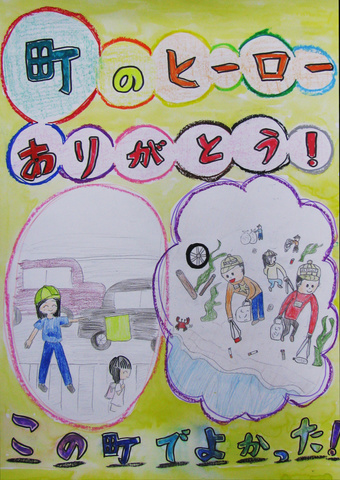 町のヒーロー
ありがとう!
この町でよかった!